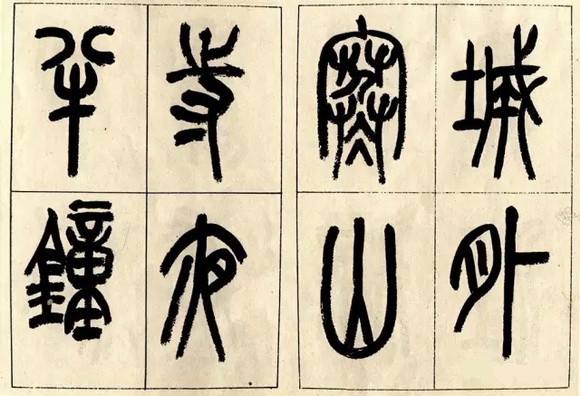 城外
寒山
寺夜
半鐘